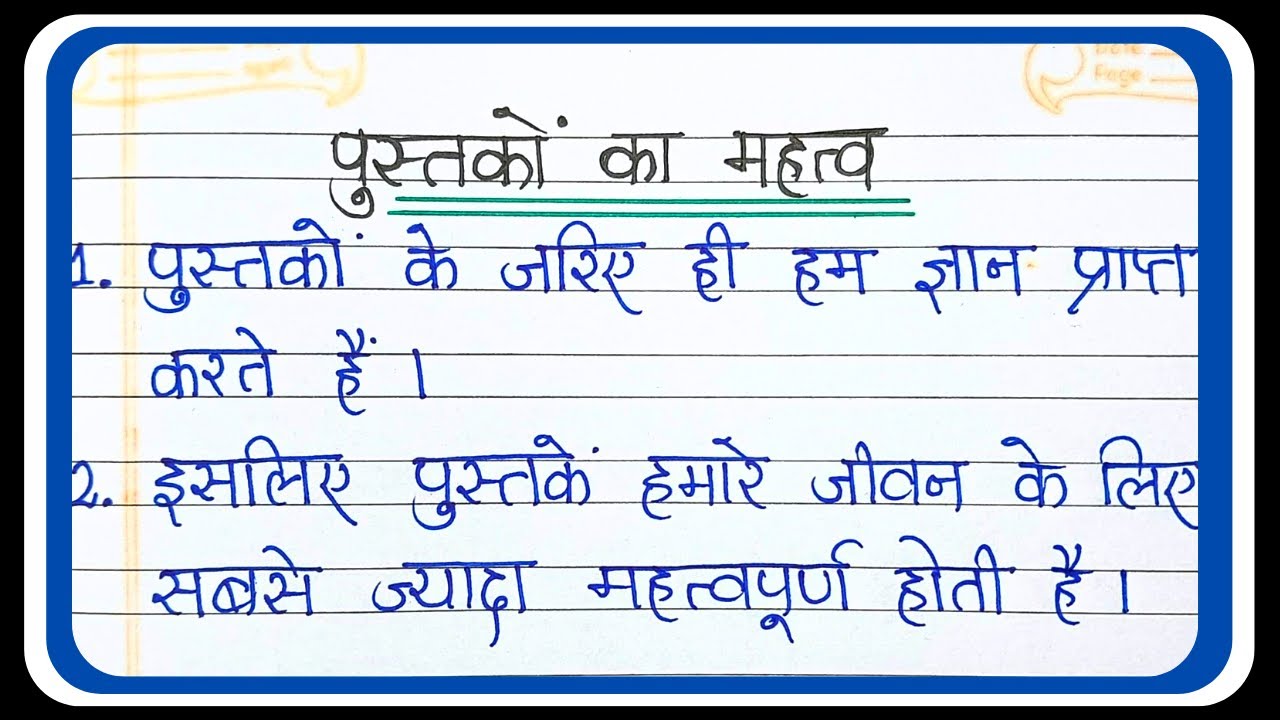 Date
Page
पुस्तकों का महत्व
1. पुस्तकों के जरिए ही हम ज्ञान प्राप्त
करते हैं ।
2. इसलिए पुस्तकें हमारे जीवन के लिए
सबसे ज्यादा महत्वपूर्ण होती है ।